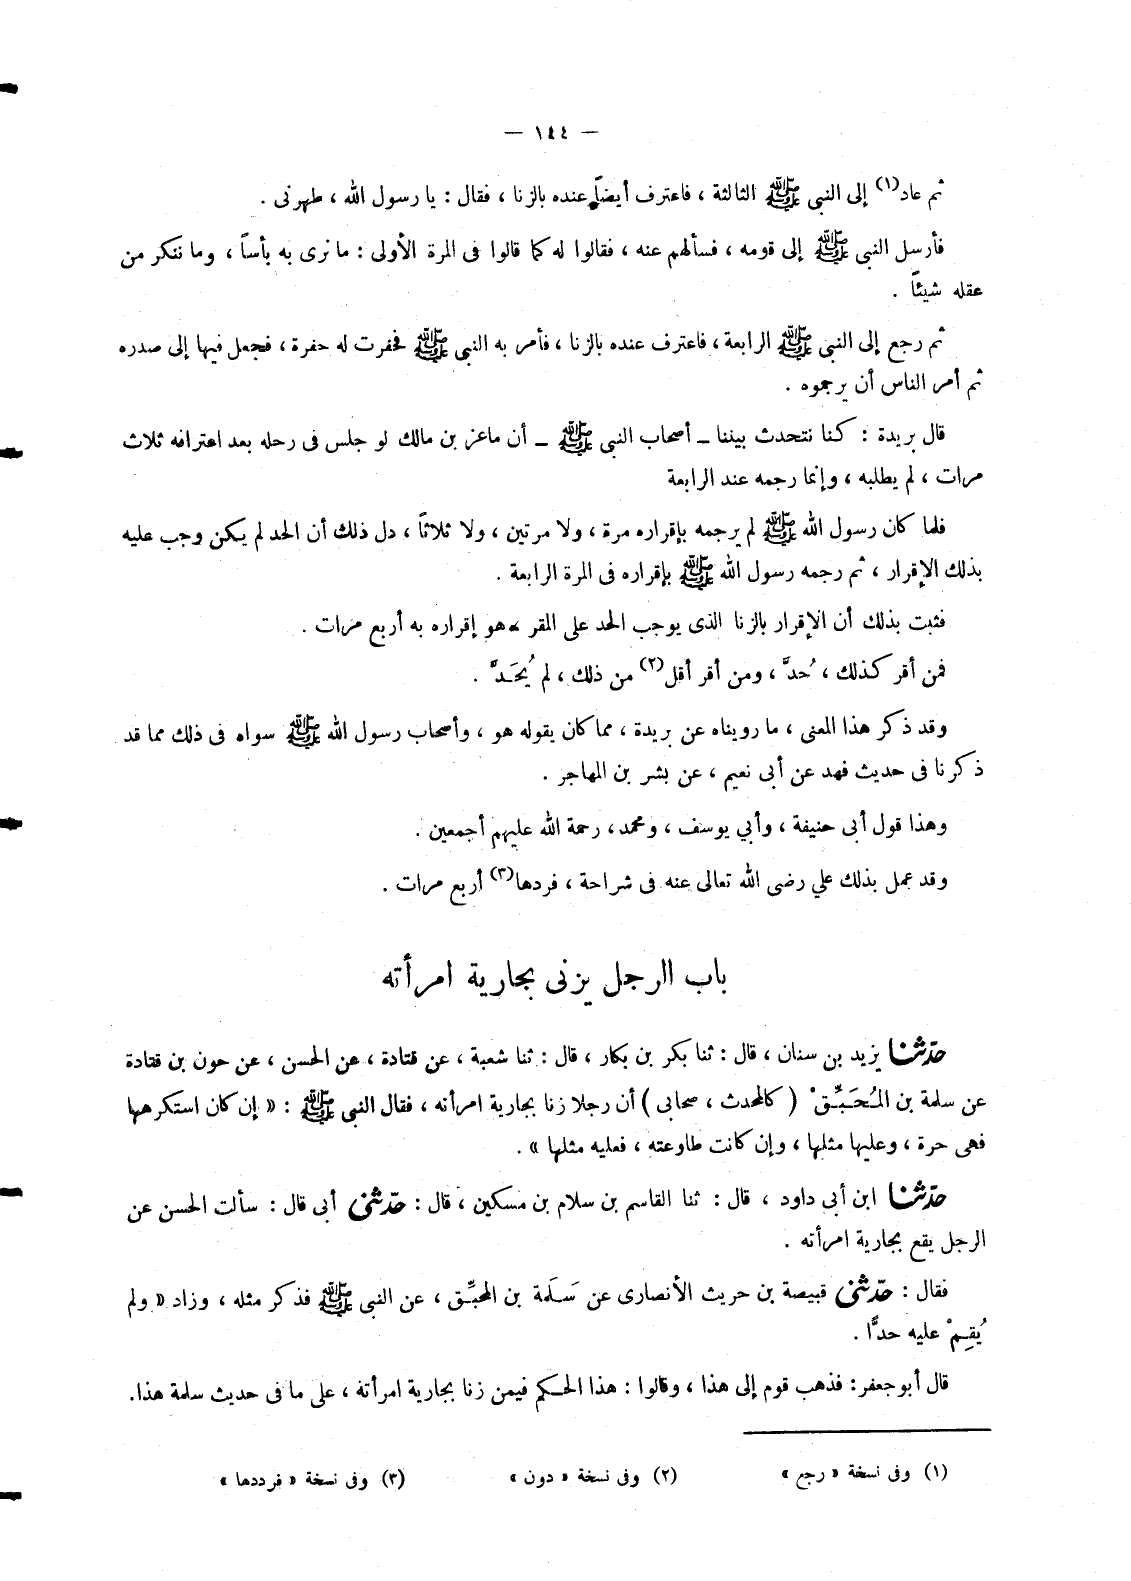 — ١٤٤ —
ثم عاد(١) إلى النبى ﷺ الثالثة ، فاعترف أيضاً عنده بالزنا ، فقال : يا رسول الله ، طهرنى .
فأرسل النبى ﷺ إلى قومه ، فسألهم عنه ، فقالوا له كما قالوا فى المرة الأولى : ما نرى به بأساً ، وما ننكر من
عقله شيئاً .
ثم رجع إلى النبى ﷺ الرابعة ، فاعترف عنده بالزنا ، فأمر به النبى ﷺ فحفرت له حفرة ، فجعل فيها إلى صدره
ثم أمر الناس أن يرجموه .
قال بريدة : كنا نتحدث بيننا ــ أصحاب النبى ﷺ ــ أن ماعز بن مالك لو جلس فى رحله بعد اعترافه ثلاث
مرات ، لم يطلبه ، وإنما رجمه عند الرابعة
فلما كان رسول الله ﷺ لم يرجمه بإقراره مرة ، ولا مرتين ، ولا ثلاثاً ، دل ذلك أن الحد لم يكن وجب عليه
بذلك الإقرار ، ثم رجمه رسول الله ﷺ بإقراره فى المرة الرابعة .
فثبت بذلك أن الإقرار بالزنا الذى يوجب الحد على المقر ، هو إقراره به أربع مرات .
فمن أقر كذلك ، حُدَّ ، ومن أقر أقل(٢) من ذلك ، لم يُحَدَّ .
وقد ذكر هذا المعنى ، ما رويناه عن بريدة ، مما كان يقوله هو ، وأصحاب رسول الله ﷺ سواه فى ذلك مما قد
ذكرنا فى حديث فهد عن أبى نعيم ، عن بشر بن المهاجر .
وهذا قول أبى حنيفة ، وأبي يوسف ، ومحمد، رحمة الله عليهم أجمعين .
وقد عمل بذلك علي رضى الله تعالى عنه فى شراحة ، فردها(٣) أربع مرات .
باب الرجل يزنى بجارية امرأته
حدّثنا يزيد بن سنان ، قال : ثنا بكر بن بكار ، قال : ثنا شعبة ، عن قتادة ، عن الحسن ، عن جون بن قتادة
عن سلمة بن المُحَبِّقْ ( كالمحدث ، صحابى ) أن رجلا زنا بجارية امرأته ، فقال النبى ﷺ : « إن كان استكرهها
فهى حرة ، وعليها مثلها ، وإن كانت طاوعته ، فعليه مثلها » .
حدّثنا ابن أبى داود ، قال : ثنا القاسم بن سلام بن مسكين ، قال : حدّثنى أبى قال : سألت الحسن عن
الرجل يقع بجارية امرأته .
فقال : حدّثنى قبيصة بن حريث الأنصارى عن سَلَمة بن المحبِّق ، عن النبى ﷺ فذكر مثله ، وزاد « ولم
يُقِمْ عليه حدًّا .
قال أبو جعفر: فذهب قوم إلى هذا ، وقالوا : هذا الحكم فيمن زنا بجارية امرأته ، على ما فى حديث سلمة هذا.
(١) وفى نسخة « رجع » (٢) وفى نسخة « دون » (٣) وفى نسخة « فرددها »